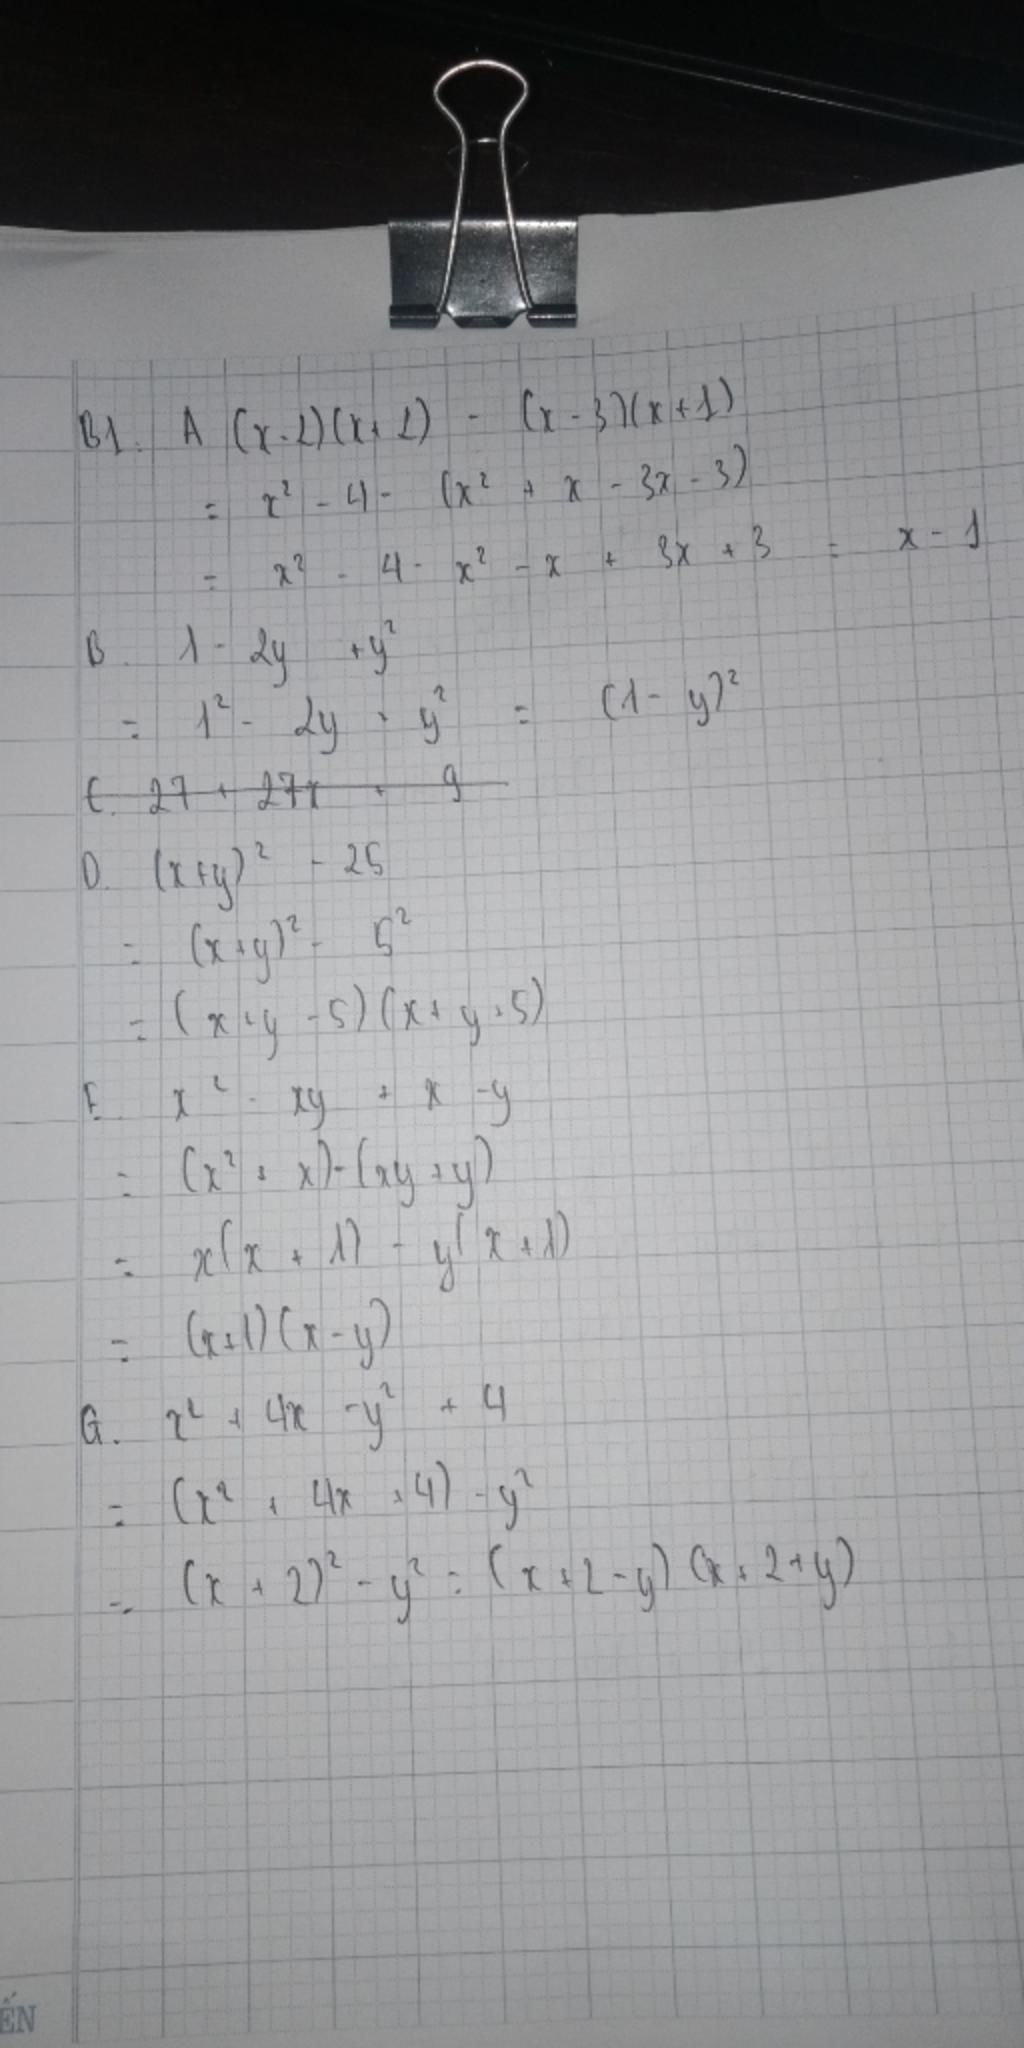 B1. A (x-2)(x+2) - (x-3)(x+1)
= x² - 4 - (x² + x - 3x - 3)
= x² - 4 - x² - x + 3x + 3 = x - 1
B. 1 - 2y + y²
= 1² - 2y + y² = (1 - y)²
C. 27 + 27x + 9
D. (x+y)² - 25
= (x+y)² - 5²
= (x+y - 5)(x+y+5)
E. x² - xy + x - y
= (x² + x) - (xy + y)
= x(x + 1) - y(x+1)
= (x+1)(x-y)
G. x² + 4x - y² + 4
= (x² + 4x + 4) - y²
= (x + 2)² - y² = (x+2-y)(x+2+y)
ẾN